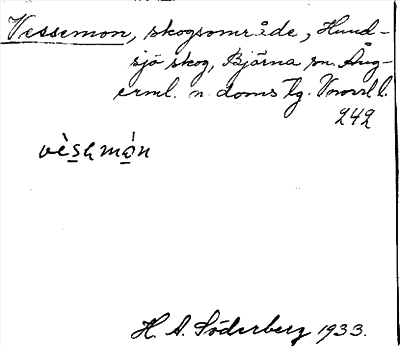 Vessemon, skogsområde, Hund-
sjö skog, Bjärna sn. Ång-
erml. n. doms tg. Vnorrl l.
242
vèsəmòn
H. A. Söderberg 1933.